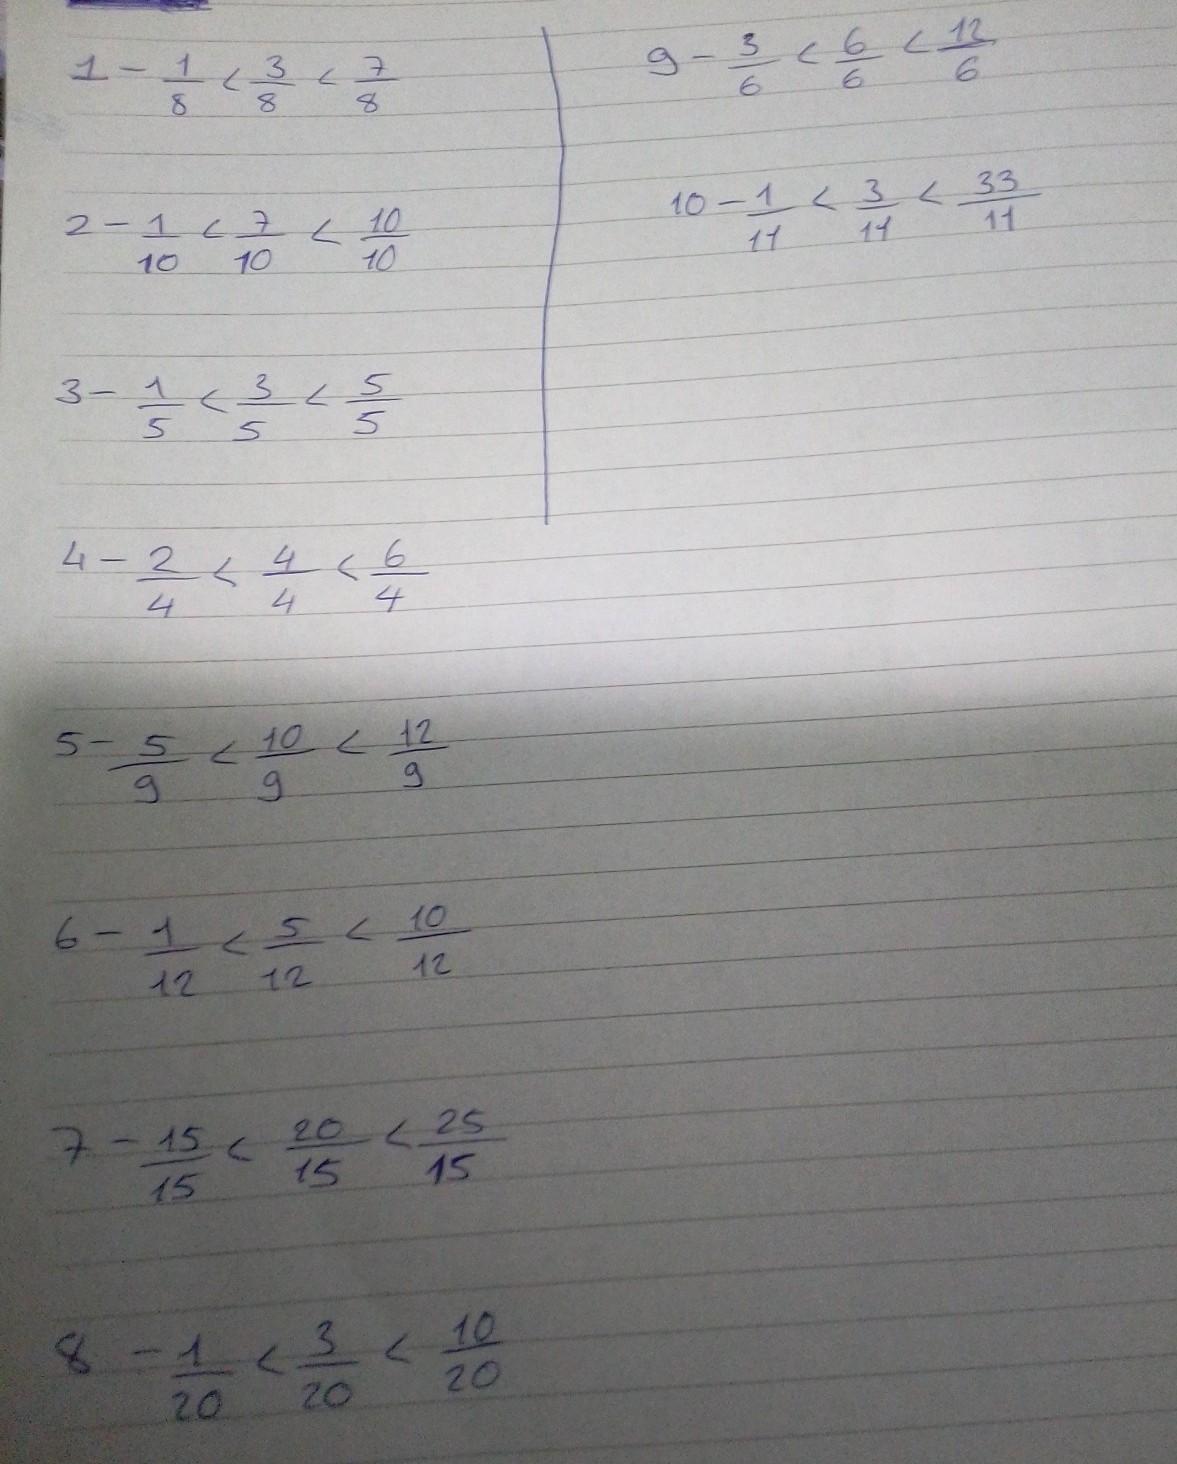 1 - 1/8 < 3/8 < 7/8
2 - 1/10 < 7/10 < 10/10
3 - 1/5 < 3/5 < 5/5
4 - 2/4 < 4/4 < 6/4
5 - 5/9 < 10/9 < 12/9
6 - 1/12 < 5/12 < 10/12
7 - 15/15 < 20/15 < 25/15
8 - 1/20 < 3/20 < 10/20
9 - 3/6 < 6/6 < 12/6
10 - 1/11 < 3/11 < 33/11